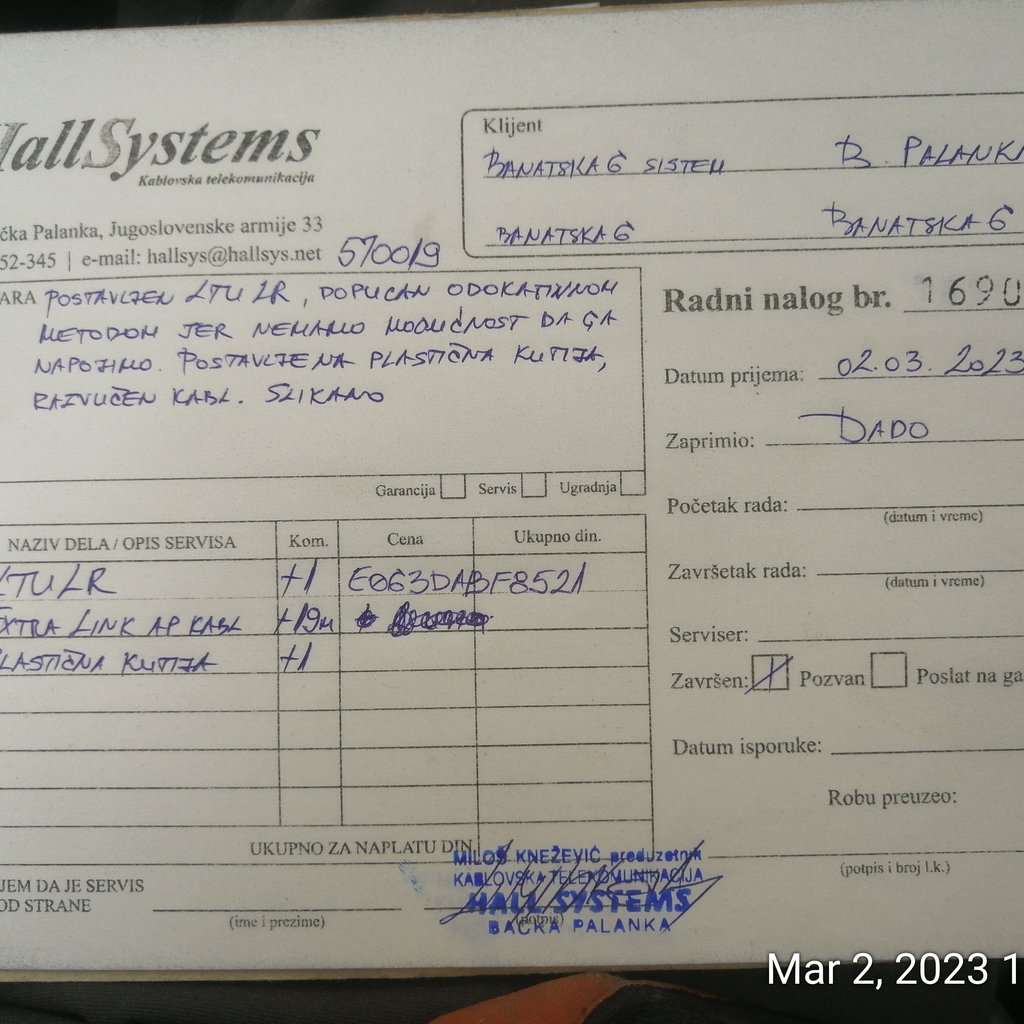 HallSystems
Kablovska telekomunikacija
čka Palanka, Jugoslovenske armije 33
52-345 | e-mail: hallsys@hallsys.net
570019
Klijent
BANATSKA 6 SISTEM B. PALANKA
BANATSKA 6 BANATSKA 6
ARA POSTAVLJEN LTU LR, DOPUCAN ODOKATIVNOM
METODOM JER NEMAMO MOGUĆNOST DA GA
NAPOJIMO. POSTAVLJENA PLASTIČNA KUTIJA,
RAZVUČEN KABL. SLIKANO
Garancija Servis Ugradnja
Radni nalog br. 1690
Datum prijema: 02.03.2023
Zaprimio: DADO
Početak rada:
(datum i vreme)
Završetak rada:
(datum i vreme)
Serviser:
Završen: Pozvan Poslat na ga
Datum isporuke:
Robu preuzeo:
(potpis i broj l.k.)
NAZIV DELA / OPIS SERVISA Kom. Cena Ukupno din.
LTU LR +1 E063DABF8521
EXTRA LINK AP KABL +19M
PLASTIČNA KUTIJA +1
UKUPNO ZA NAPLATU DIN
JEM DA JE SERVIS
OD STRANE
(ime i prezime)
(potpis)
MILOŠ KNEŽEVIĆ preduzetnik
KABLOVSKA TELEKOMUNIKACIJA
HALL SYSTEMS
BAČKA PALANKA
Mar 2, 2023 1